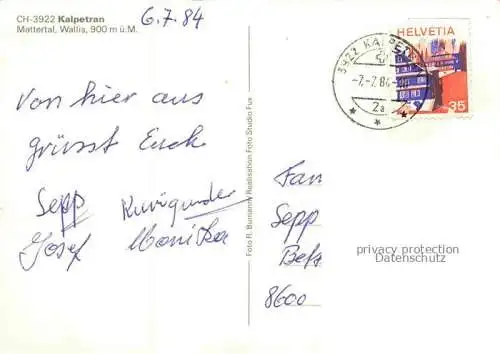 CH-3922 Kalpetran
Mattertal, Wallis, 900 m ü.M.
6.7.84
Von hier aus
grüsst Euch
Sepp Kunigunder
Josef Monika
Foto R. Bumann/Realisation Foto Studio Fux
3922 KALPETRAN
-7.-7.84
2a
HELVETIA
35
Fam
Sepp
8600
privacy protection
Datenschutz